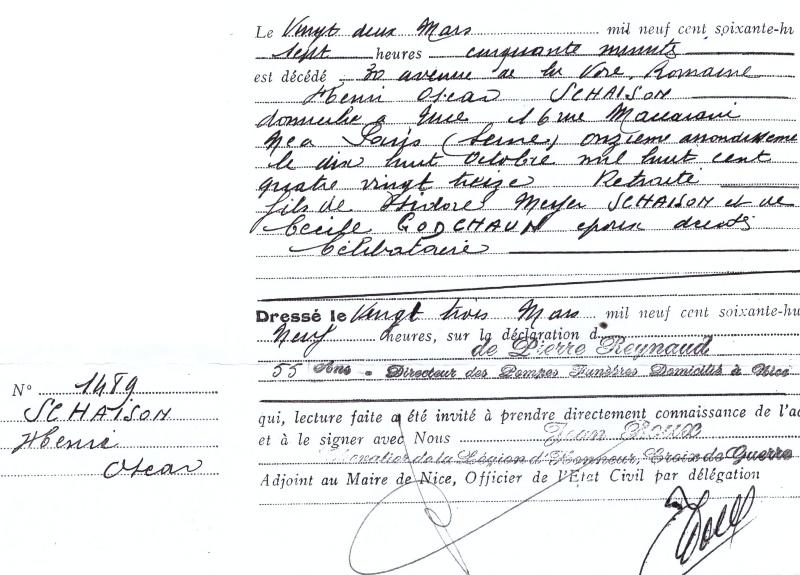 Le Vingt deux Mars mil neuf cent soixante-hu
sept heures cinquante minutes
est décédé 30 avenue de la Voie Romaine
Henri Oscar SCHAISON
domicilié à Nice 16 rue Maccarani
Né à Paris (Seine) onzième arrondissement
le dix huit Octobre mil huit cent
quatre vingt treize Retraité
fils de Isidore Meyer SCHAISON et de
Cécile GODCHAUX époux décédés
Célibataire
Dressé le Vingt trois Mars mil neuf cent soixante-hu
Neuf heures, sur la déclaration d
de Pierre Reynaud
55 Ans - Directeur des Pompes Funèbres Domicilié à Nice
N° 1489
SCHAISON
Henri
Oscar
qui, lecture faite a été invité à prendre directement connaissance de l'ac
et à le signer avec Nous Jean
Chevalier de la Légion d'Honneur, Croix de Guerre
Adjoint au Maire de Nice, Officier de l'Etat Civil par délégation